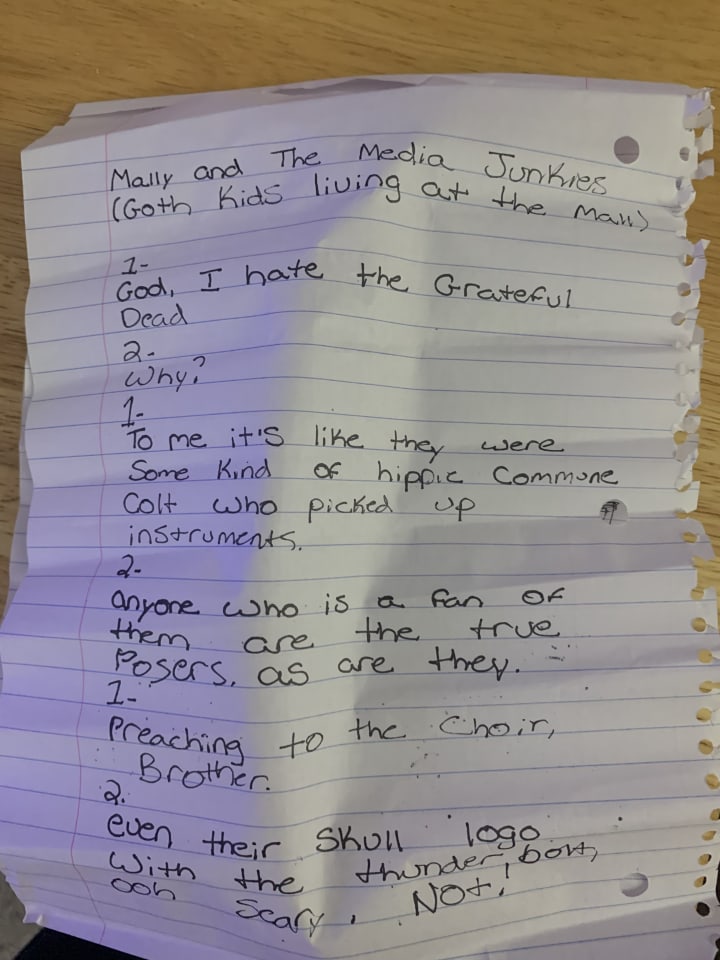 Mally and The Media Junkies
(Goth Kids living at the Mall)
1-
God, I hate the Grateful
Dead
2-
Why?
1-
To me it's like they were
Some Kind of hippie Commune
Colt who picked up
instruments.
2-
anyone who is a fan of
them are the true
Posers, as are they.
1-
Preaching to the Choir,
Brother.
2.
even their skull logo
With the thunder bolt,
ooh scary, NOT!